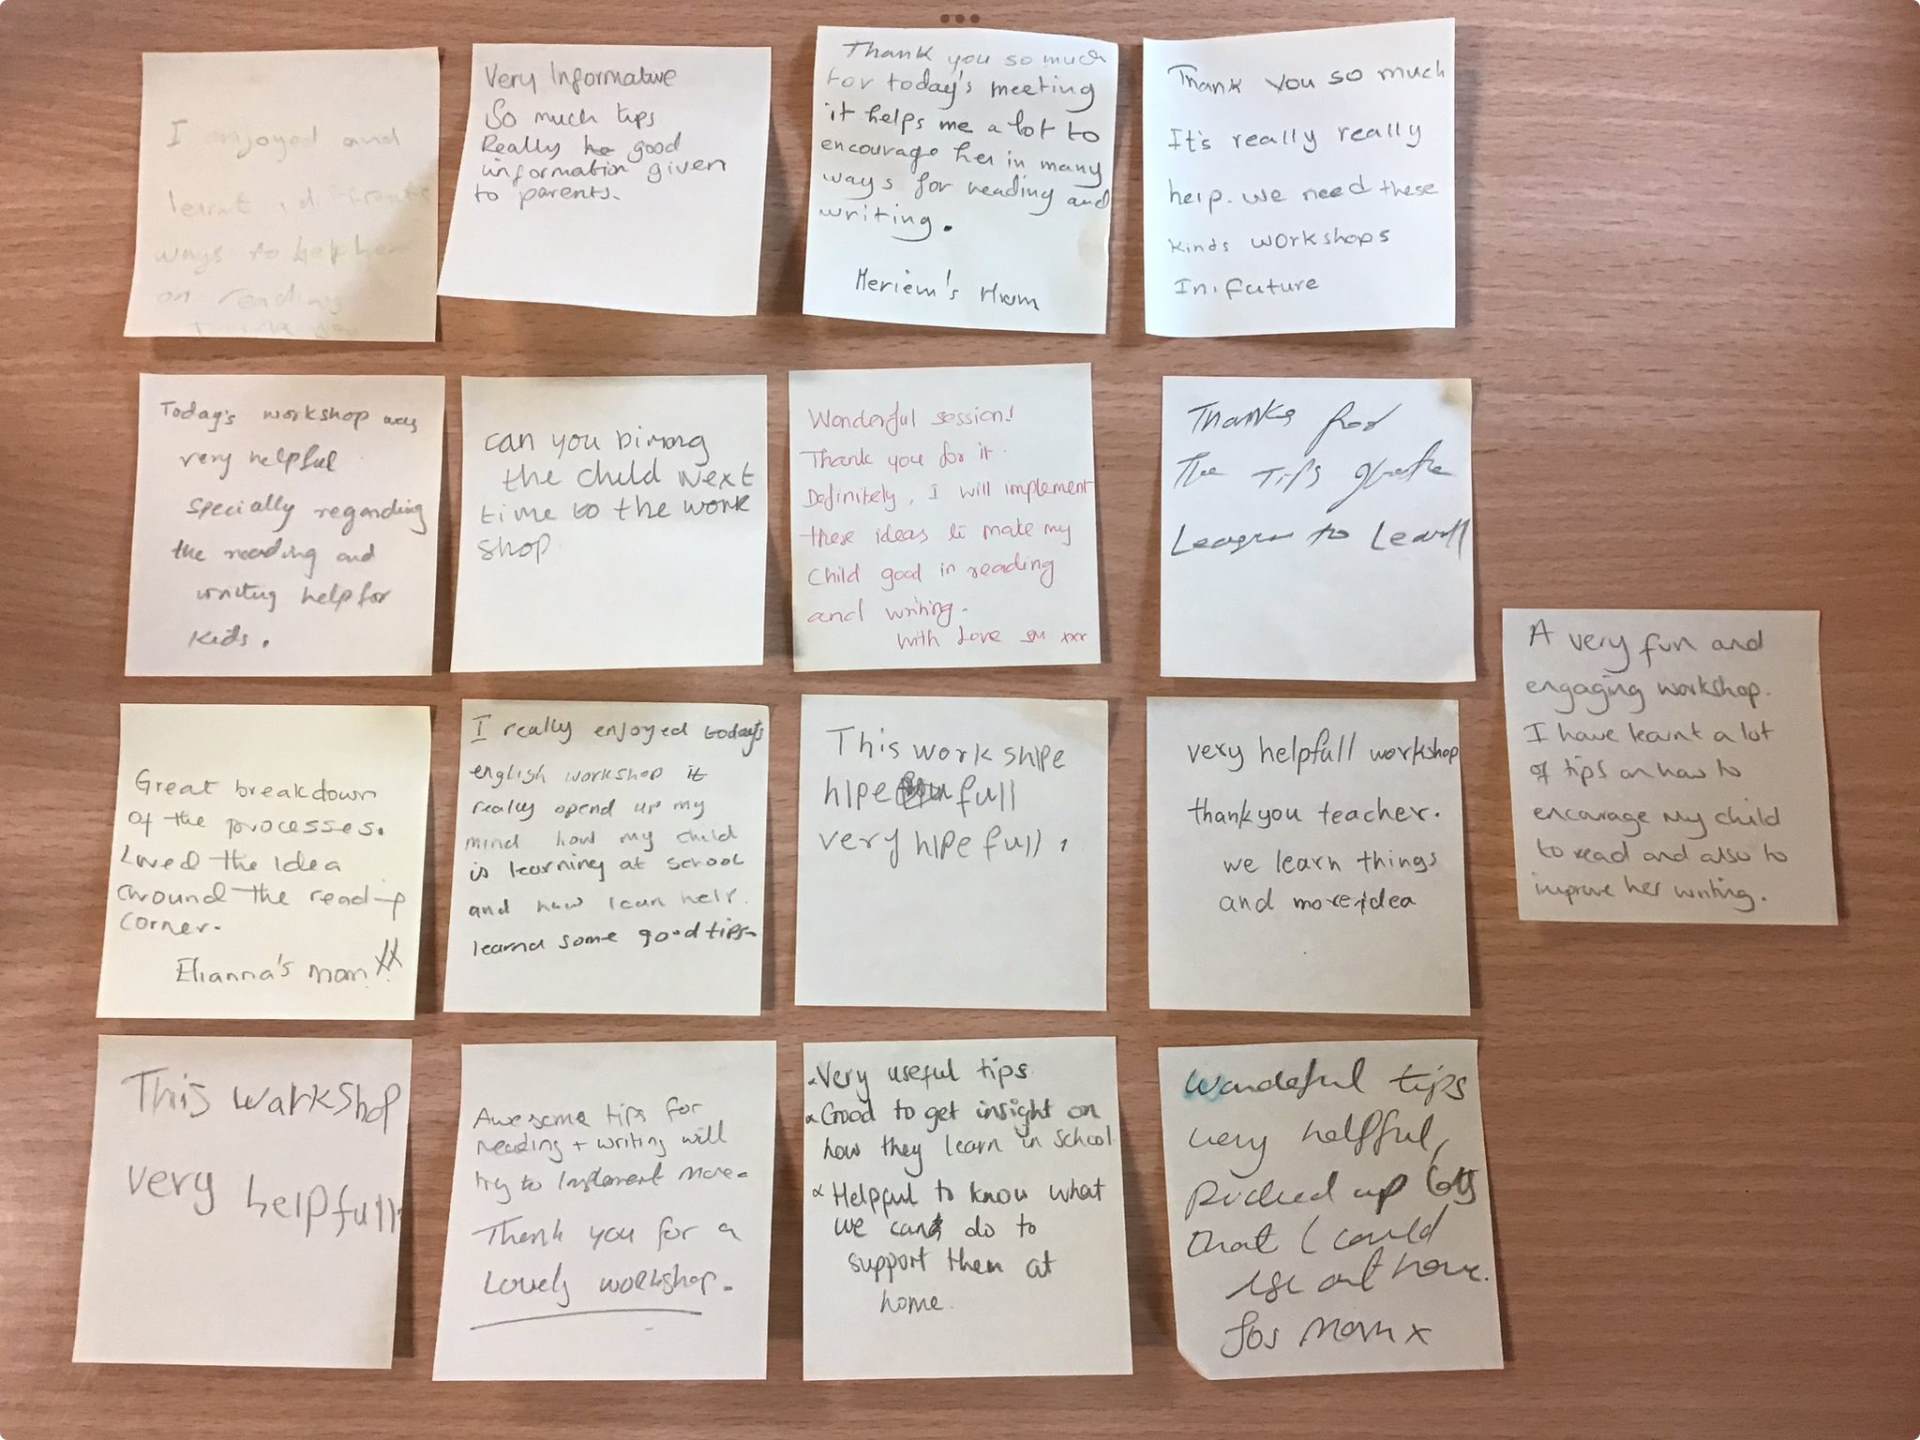 I enjoyed and
learnt different
ways to help her
on reading
Very Informative
So much tips
Really good
information given
to parents.
Thank you so much
For today's meeting
it helps me a lot to
encourage her in many
ways for reading and
writing.
Meriem's Mum
Thank you so much
It's really really
help. We need these
kinds workshops
In future
Today's workshop was
very helpful
specially regarding
the reading and
writing help for
kids.
can you biring
the child Next
time to the work
shop
Wonderful session!
Thank you for it.
Definitely, I will implement
these ideas to make my
child good in reading
and writing.
with Love xxx
Thanks for
The Tips
to Learn
Great breakdown
of the processes.
Loved the idea
around the reading
corner.
Elianna's mam XX
I really enjoyed today's
english workshop it
really opend up my
mind how my child
is learning at school
and how I can help.
learnd some good tips.
This work shipe
hlpe full
very hlpe full,
very helpfull workshop
thankyou teacher.
we learn things
and more idea
A very fun and
engaging workshop.
I have learnt a lot
of tips on how to
encourage my child
to read and also to
improve her writing.
This warkshop
very helpfull.
Awesome tips for
reading + writing will
try to implement more.
Thank you for a
Lovely workshop.
Very useful tips
Good to get insight on
how they learn in school
Helpful to know what
we can do to
support them at
home.
Wondeful tips
very helpful,
Picked up lots
that I could
use at home.
Mam x